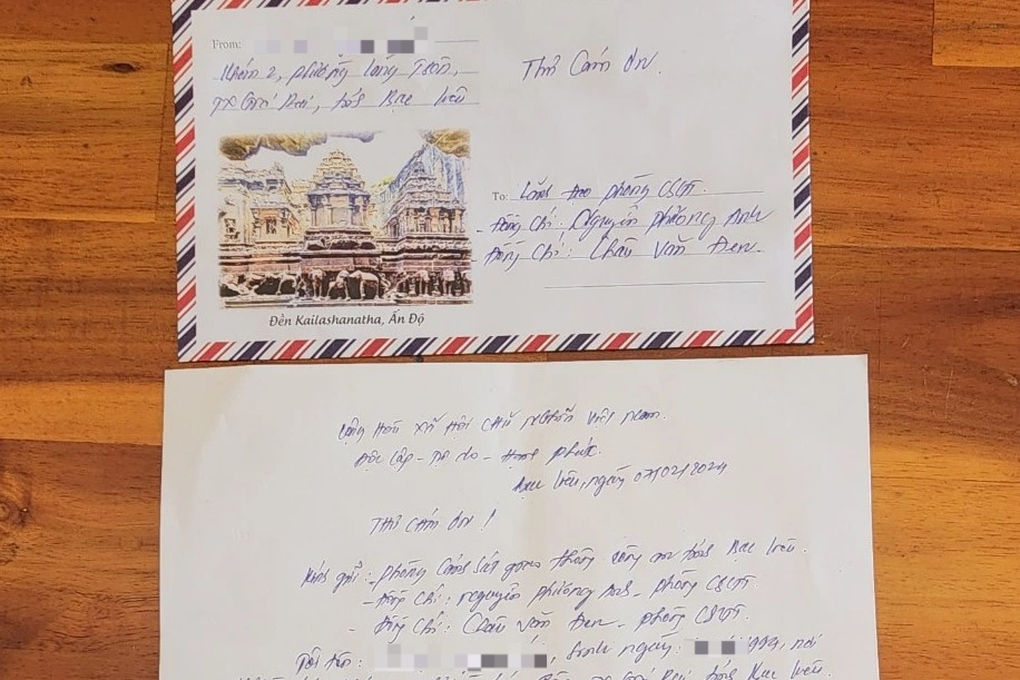 From:
Khóm 2, phường Láng Tròn,
TX Giá Rai, tỉnh Bạc Liêu
Thư Cám ơn.
To: Lãnh đạo phòng CSGT.
- Đồng Chí: Nguyễn Phương Anh
- Đồng Chí: Châu Văn Đen.
Đền Kailashanatha, Ấn Độ
Cộng Hòa Xã Hội Chủ Nghĩa Việt Nam.
Độc Lập - Tự do - Hạnh phúc.
Bạc Liêu, ngày 07/02/2024
Thư cám ơn!
Kính gửi: - Phòng Cảnh sát giao thông Công an tỉnh Bạc Liêu.
- Đồng Chí: Nguyễn Phương Anh - Phòng CSGT
- Đồng Chí: Châu Văn Đen - phòng CSGT.
Tôi tên: , sinh ngày: 1994, nơi
TX Giá Rai, tỉnh Bạc Liêu.